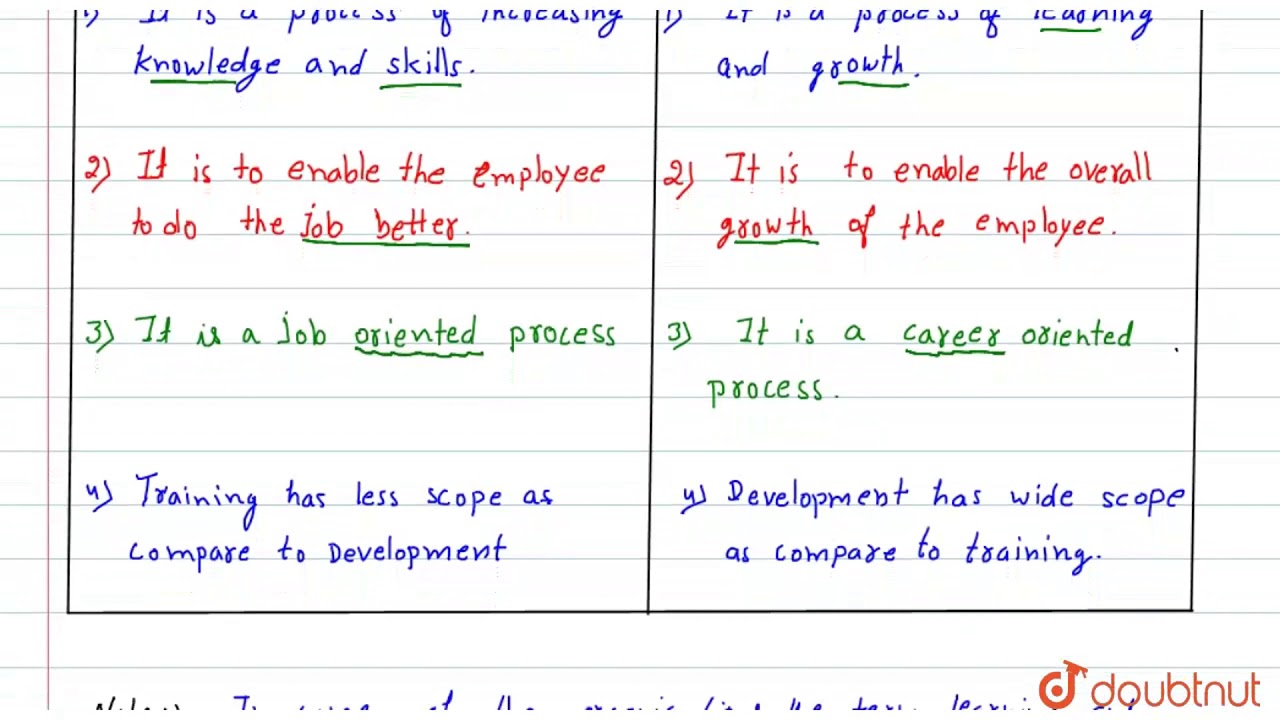 1) It is a process of increasing
knowledge and skills.
2) It is to enable the employee
to do the job better.
3) It is a job oriented process
4) Training has less scope as
compare to Development
1) It is a process of learning
and growth.
2) It is to enable the overall
growth of the employee.
3) It is a career oriented
process.
4) Development has wide scope
as compare to training.
doubtnut